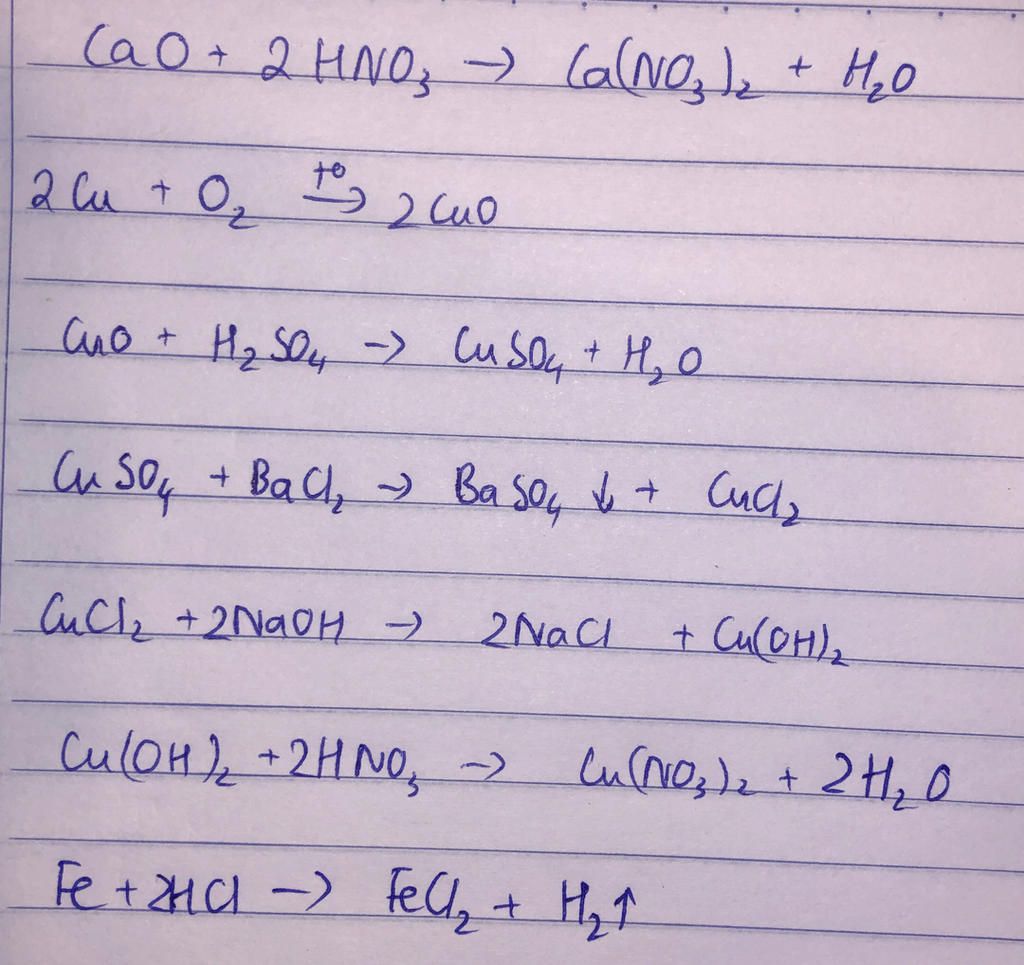 CaO + 2HNO₃ → Ca(NO₃)₂ + H₂O
2Cu + O₂ →(t°) 2CuO
CuO + H₂SO₄ → CuSO₄ + H₂O
CuSO₄ + BaCl₂ → BaSO₄ ↓ + CuCl₂
CuCl₂ + 2NaOH → 2NaCl + Cu(OH)₂
Cu(OH)₂ + 2HNO₃ → Cu(NO₃)₂ + 2H₂O
Fe + 2HCl → FeCl₂ + H₂↑